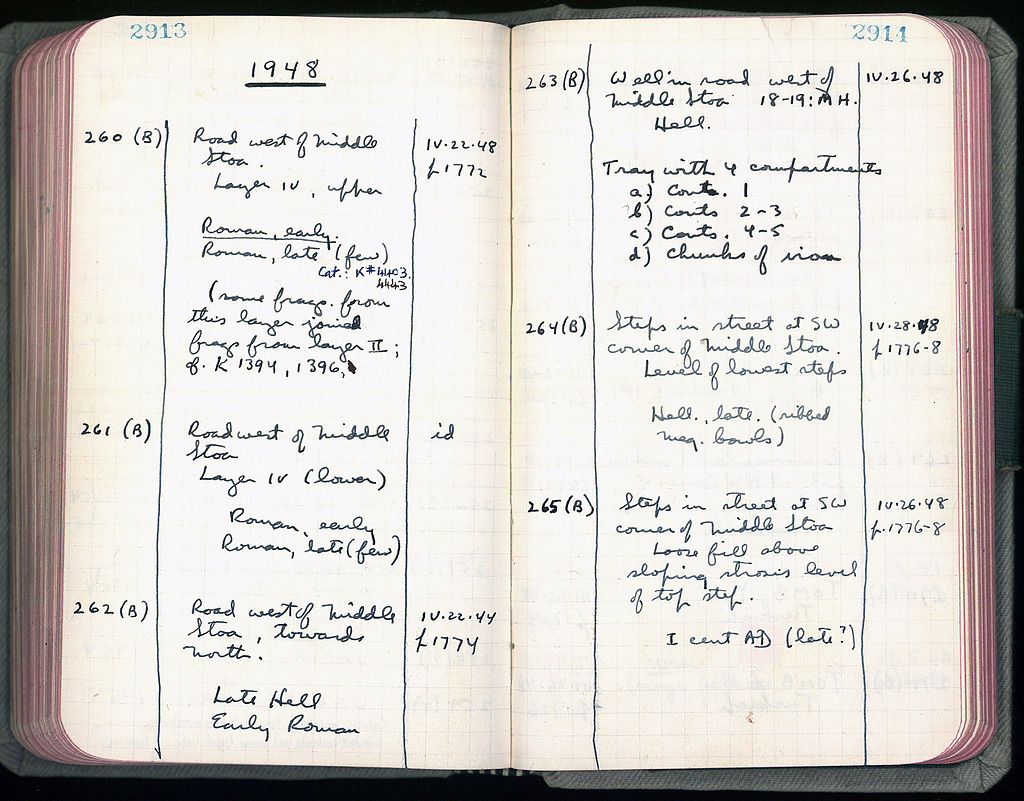 2913
1948
260 (B) Road west of Middle IV.22.48
Stoa. p. 1772
Layer IV, upper
Roman, early.
Roman, late (few)
Cat.: K#4403.
4443
(some frags. from
this layer joined
frags from layer II;
cf. K 1394, 1396,
261 (B) Road west of Middle id
Stoa
Layer IV (lower)
Roman, early
Roman, late (few)
262 (B) Road west of Middle IV.22.44
Stoa, towards p. 1774
north.
Late Hell
Early Roman
2914
263 (B) Well in road west of IV.26.48
Middle Stoa 18-19: M H.
Hell.
Tray with 4 compartments
a) Conts. 1
b) Conts 2-3
c) Conts. 4-5
d) Chunks of iron
264 (B) Steps in street at SW IV.28.48
corner of Middle Stoa. p. 1776-8
Level of lowest steps
Hell., late. (ribbed
Meg. bowls)
265 (B) Steps in street at SW IV.26.48
corner of Middle Stoa p. 1776-8
Loose fill above
sloping strosis level
of top step.
I cent AD (late?)